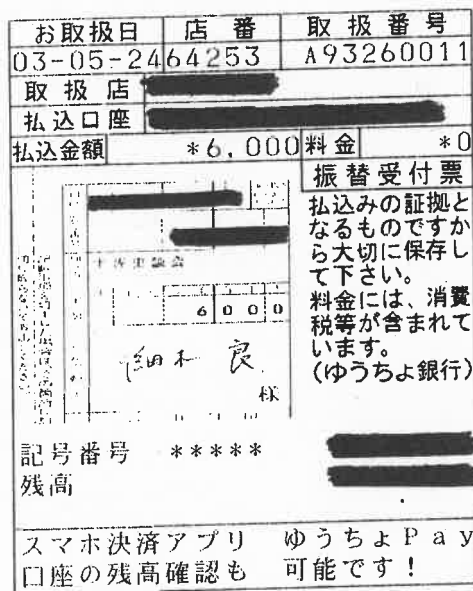 お取扱日 店番 取扱番号
03-05-24 64253 A93260011
取扱店
払込口座
払込金額 *6,000 料金 *0
振替受付票
払込みの証拠と
なるものですか
ら大切に保存し
て下さい。
料金には、消費
税等が含まれて
います。
(ゆうちょ銀行)
6000
細木 良
様
記号番号 *****
残高
スマホ決済アプリ ゆうちょPay
口座の残高確認も 可能です!